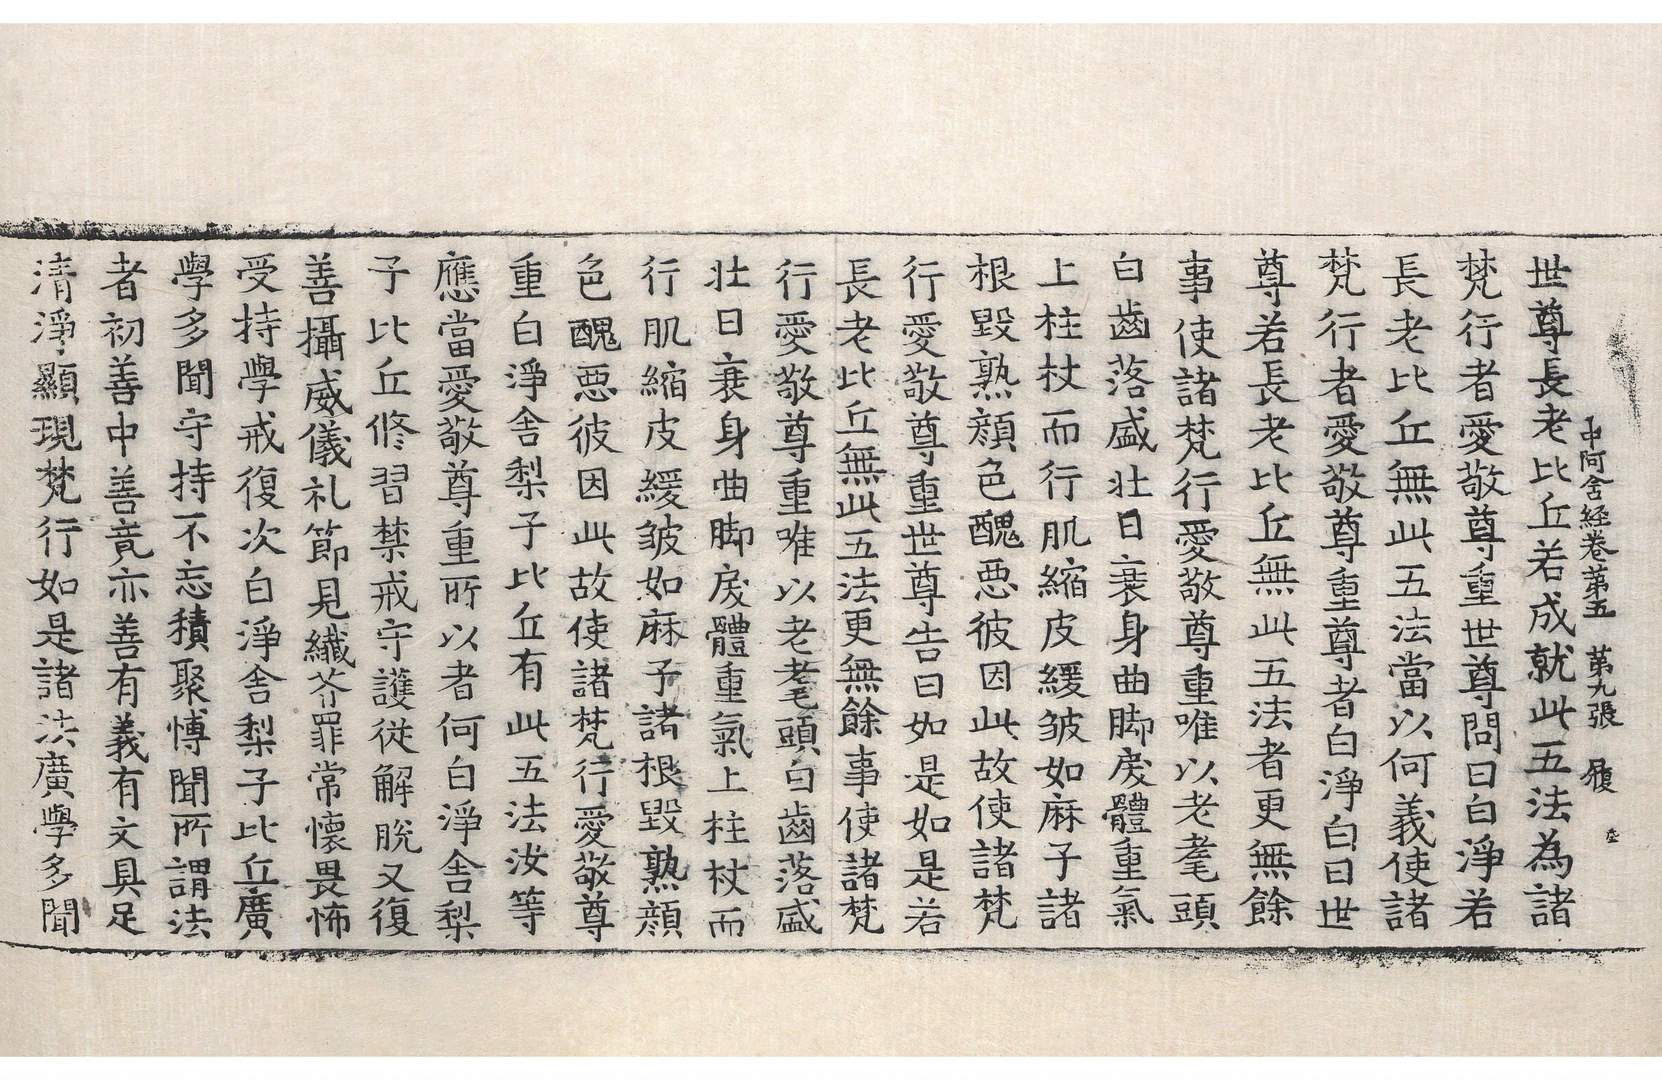 中阿含経卷苐五　苐九張　履
世尊長老比丘若成就此五法為諸
梵行者愛敬尊重世尊問曰白淨若
長老比丘無此五法當以何義使諸
梵行者愛敬尊重尊者白淨白曰世
尊若長老比丘無此五法者更無餘
事使諸梵行愛敬尊重唯以老耄頭
白齒落盛壯日衰身曲脚戾體重氣
上柱杖而行肌縮皮緩皺如麻子諸
根毀熟顏色醜惡彼因此故使諸梵
行愛敬尊重世尊告曰如是如是若
長老比丘無此五法更無餘事使諸梵
行愛敬尊重唯以老耄頭白齒落盛
壯日衰身曲脚戾體重氣上柱杖而
行肌縮皮緩皺如麻子諸根毀熟顏
色醜惡彼因此故使諸梵行愛敬尊
重白淨舎梨子比丘有此五法汝等
應當愛敬尊重所以者何白淨舎梨
子比丘修習禁戒守護從解脫又復
善攝威儀礼節見纖芥罪常懷畏怖
受持學戒復次白淨舎梨子比丘廣
學多聞守持不忘積聚博聞所謂法
者初善中善竟亦善有義有文具足
清淨顯現梵行如是諸法廣學多聞